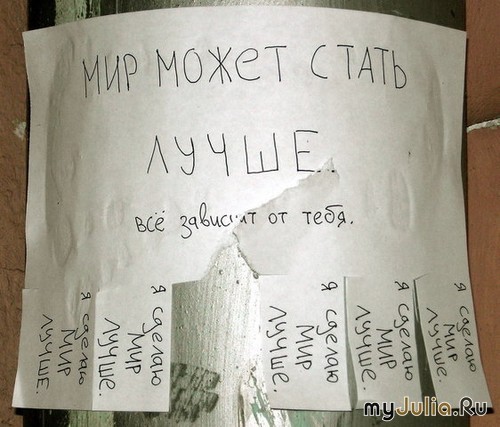 МИР МОЖЕТ СТАТЬ
ЛУЧШЕ.
всё зависит от тебя.
Я сделаю
МИР
ЛУЧШЕ.
Я сделаю
МИР
Лучше.
Я сделаю
МИР
Лучше.
Я сделаю
МИР
Лучше.
Я сделаю
МИР
Лучше.
myJulia.Ru